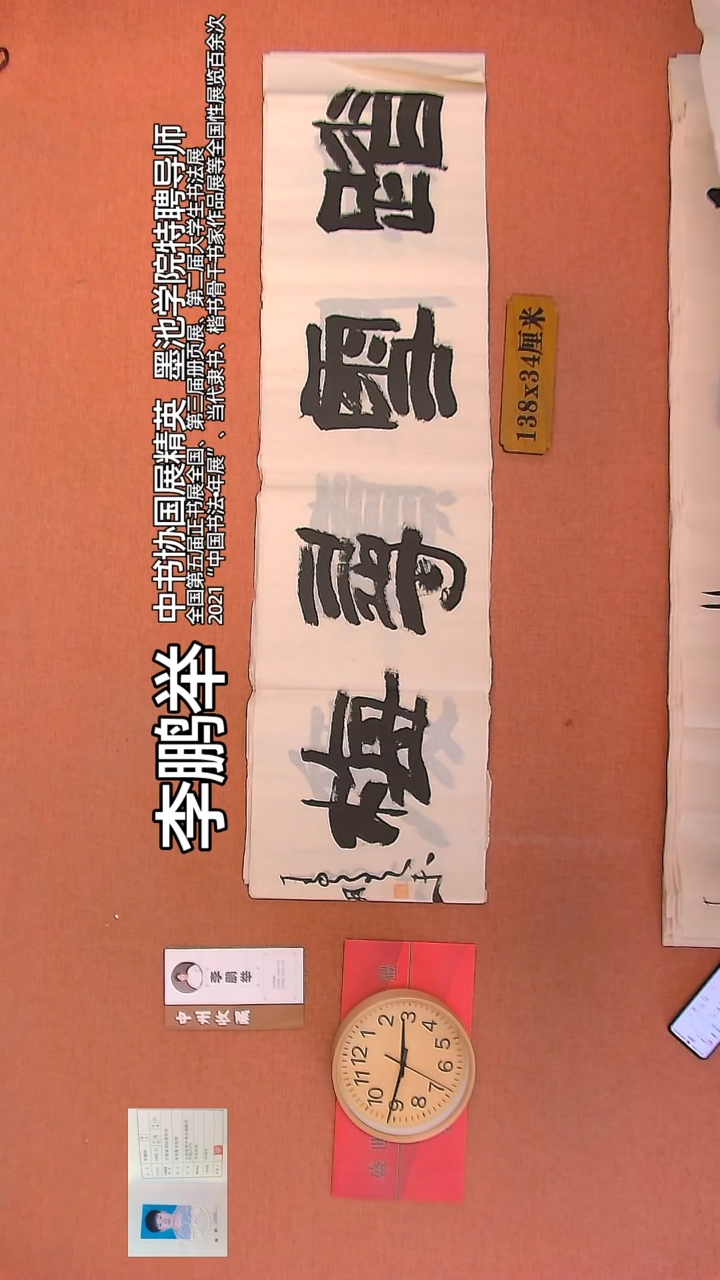 李鹏举
中书协国展精英 墨池学院特聘导师
全国第五届正书展全国、第三届册页展、第二届大学生书法展
2021“中国书法•年展”、当代隶书、楷书骨干书家作品展等全国性展览百余次
踏雪尋梅
138x34厘米
李鹏举
中州收藏
12
1
2
3
4
5
6
7
8
9
10
11